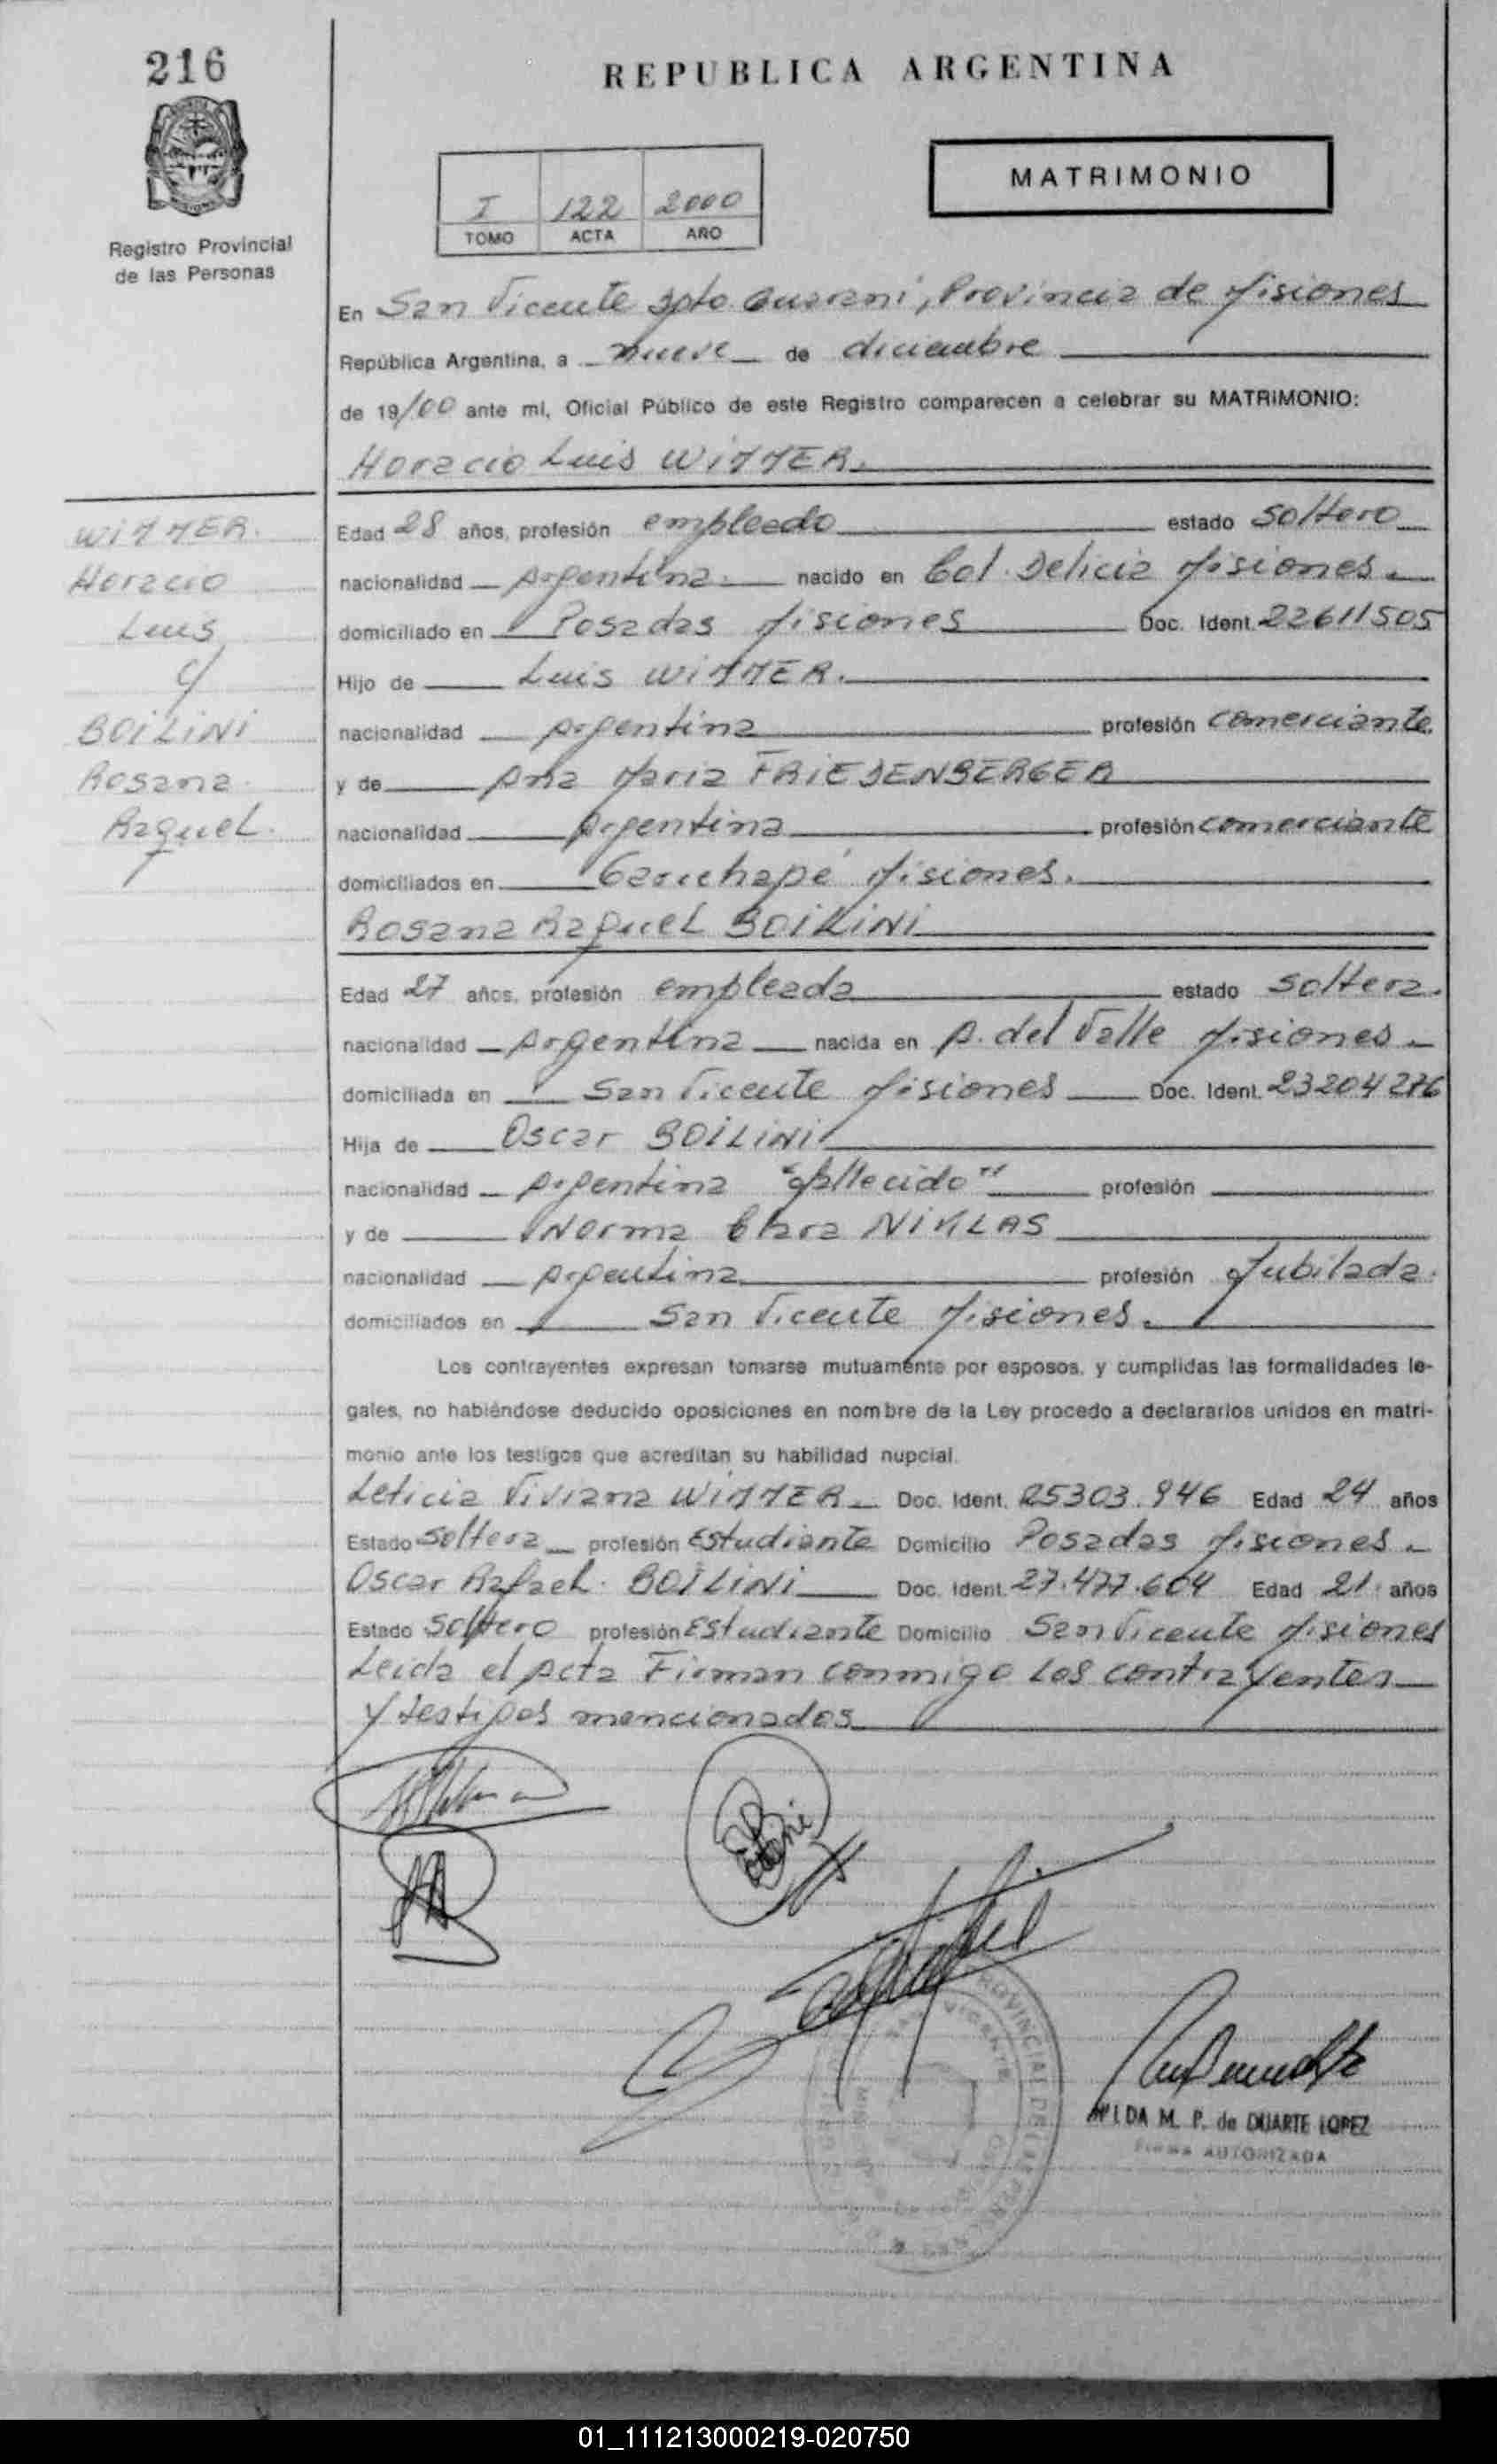 216
REPUBLICA ARGENTINA
MATRIMONIO
I 122 2000
TOMO ACTA AÑO
Registro Provincial
de las Personas
En San Vicente Dpto. Guaraní, Provincia de Misiones
República Argentina, a nueve de diciembre
de 19/00 ante mí, Oficial Público de este Registro comparecen a celebrar su MATRIMONIO:
Horacio Luis WIMMER.
WIMMER.
Horacio
Luis
c/
BOILINI
Rosana
Raquel.
Edad 28 años, profesión empleado estado soltero
nacionalidad Argentina. nacido en Col. Delicia Misiones.
domiciliado en Posadas Misiones Doc. Ident. 22611505
Hijo de Luis WIMMER.
nacionalidad Argentina profesión comerciante.
y de Ana Maria FRIEDENBERGER
nacionalidad Argentina profesión comerciante
domiciliados en Garuhapé Misiones.
Rosana Raquel BOILINI
Edad 27 años, profesión empleada estado soltera.
nacionalidad Argentina nacida en A. del Valle Misiones.
domiciliada en San Vicente Misiones Doc. Ident. 23204276
Hija de Oscar BOILINI
nacionalidad Argentina "fallecido" profesión
y de Norma Clara NIKLAS
nacionalidad Argentina profesión Jubilada.
domiciliados en San Vicente Misiones.
Los contrayentes expresan tomarse mutuamente por esposos, y cumplidas las formalidades le-
gales, no habiéndose deducido oposiciones en nombre de la Ley procedo a declararlos unidos en matri-
monio ante los testigos que acreditan su habilidad nupcial.
Leticia Viviana WIMMER Doc. Ident. 25303.946 Edad 24 años
Estado Soltera profesión Estudiante Domicilio Posadas Misiones.
Oscar Rafael. BOILINI Doc. Ident. 27.477.604 Edad 21 años
Estado Soltero profesión Estudiante Domicilio San Vicente Misiones
Leida el Acta Firman conmigo los contrayentes
y testigos mencionados
M. P. de DUARTE LOPEZ
FIRMA AUTORIZADA
01_111213000219-020750